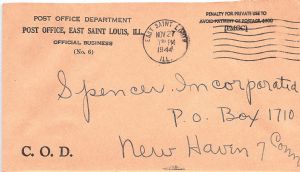 POST OFFICE DEPARTMENT
POST OFFICE, EAST SAINT LOUIS, ILL.
OFFICIAL BUSINESS
(No. 6)
EAST SAINT LOUIS
NOV 27
PM
1944
ILL.
PENALTY FOR PRIVATE USE TO
AVOID PAYMENT OF POSTAGE, $300
[PMGC]
Spencer, Incorporated
P. O. Box 1710
New Haven 7 Conn
C. O. D.